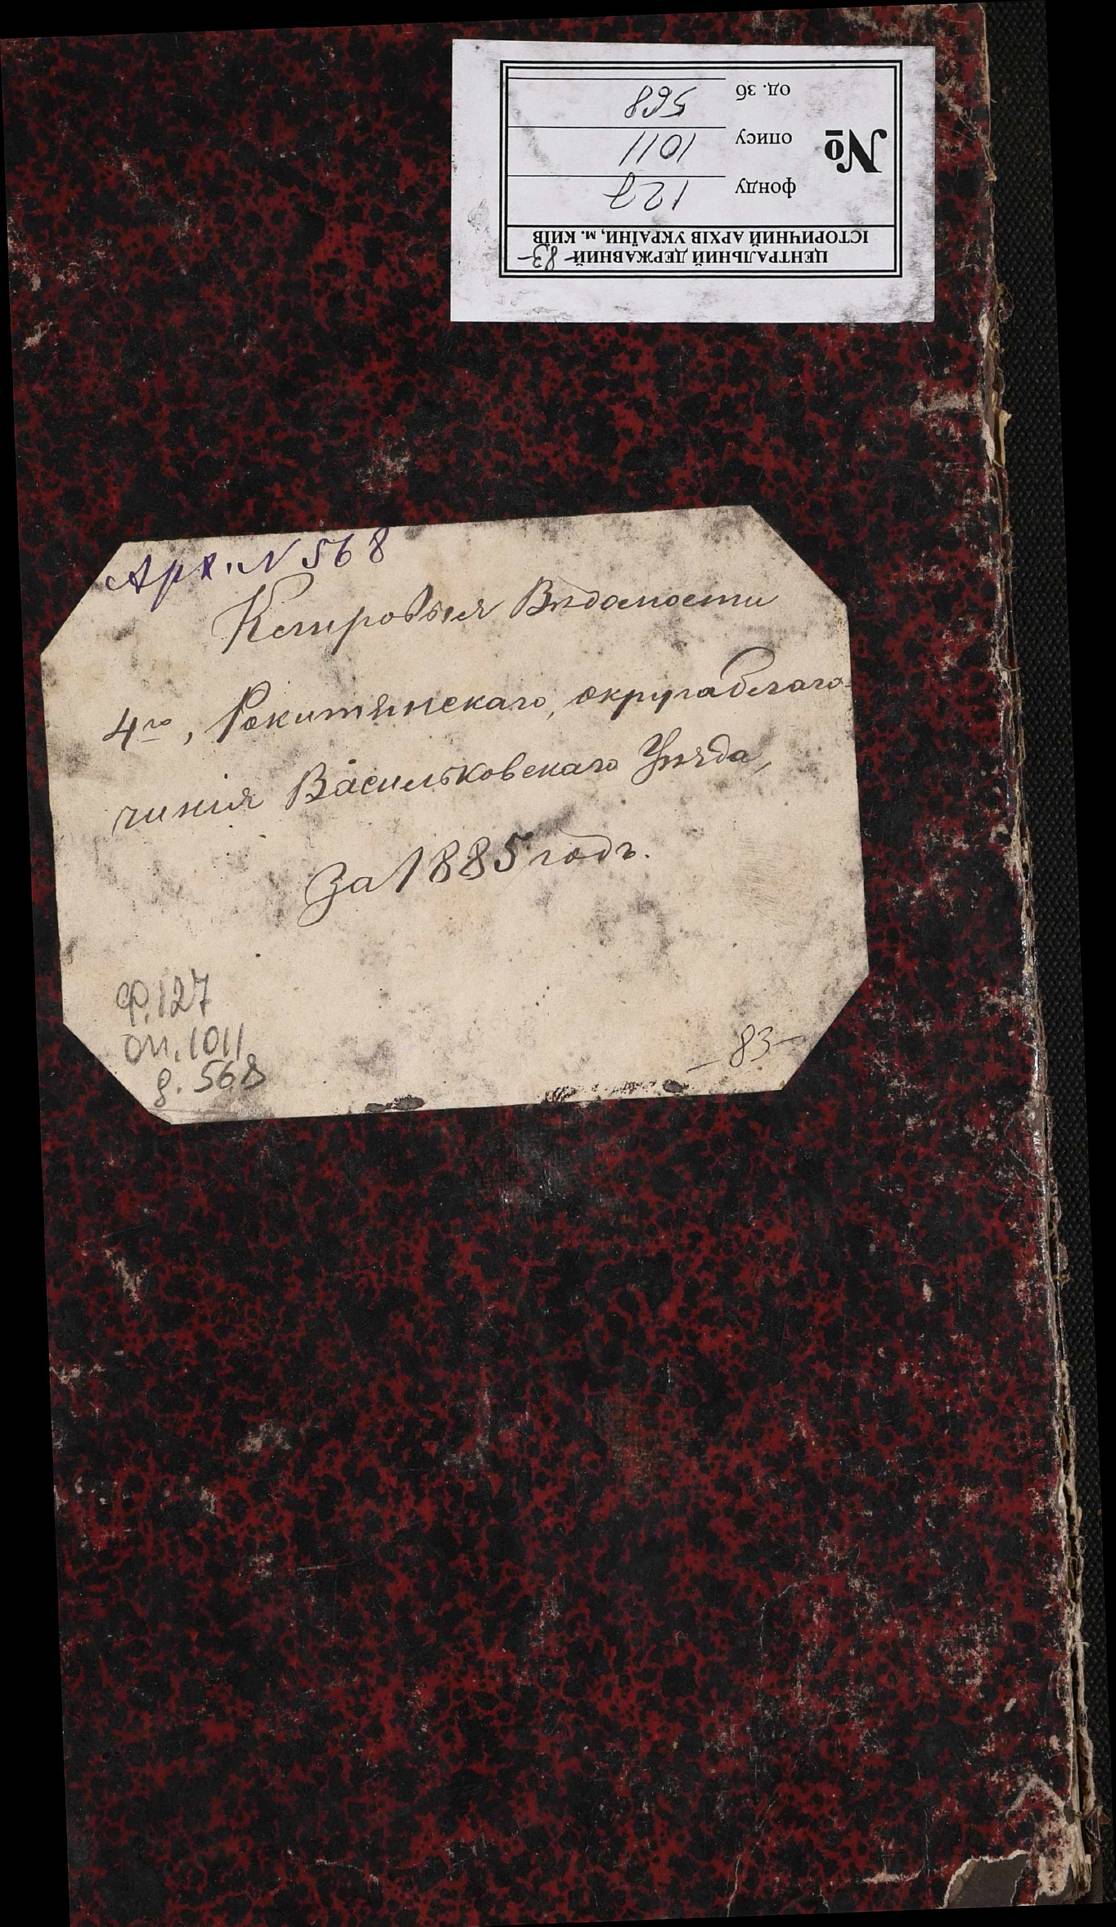 ЦЕНТРАЛЬНИЙ ДЕРЖАВНИЙ -83-
ІСТОРИЧНИЙ АРХІВ УКРАЇНИ, м. КИЇВ
№
фонду 127
опису 1011
од. зб 568
Арх. N 568
Клировыя Вѣдомости
4го, Рокитянскаго, округа благо-
чинія Васильковскаго Уѣзда,
За 1885 годъ.
Ф. 127
оп. 1011
д. 568
-83-